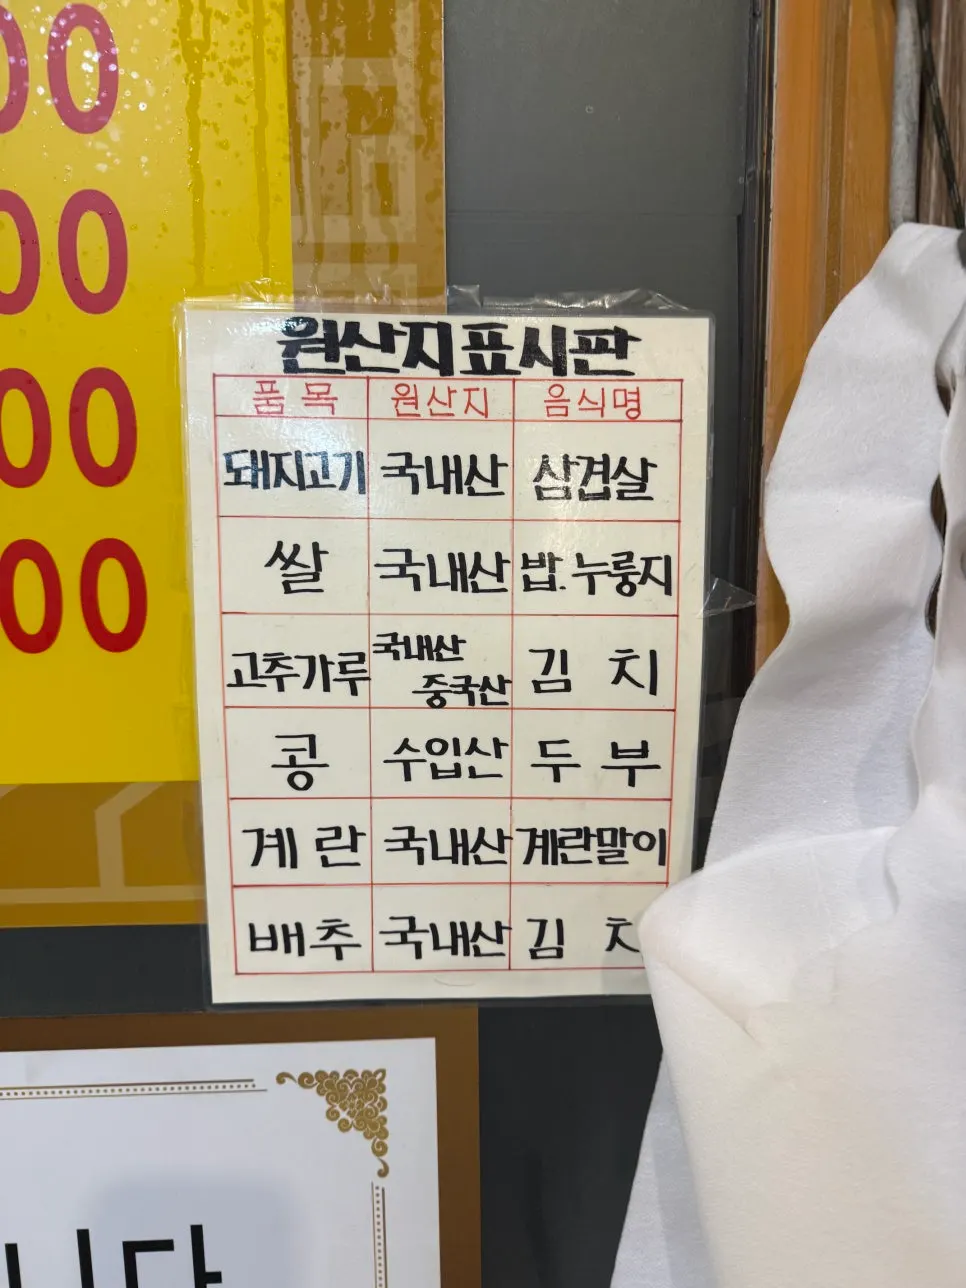 00
00
00
00
원산지표시판
품목 원산지 음식명
돼지고기 국내산 삼겹살
쌀 국내산 밥.누룽지
고추가루 국내산 중국산 김치
콩 수입산 두부
계란 국내산 계란말이
배추 국내산 김치
니다